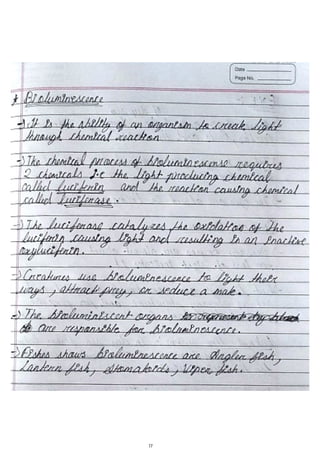 Date
Page No.
* Bioluminescence
→ It is the ability of an organism to create light
through chemical reaction.
→ The chemical process of bioluminescense requires
2 chemicals i.e the light producing chemical
called luciferin and the reaction causing chemical
called luciferase.
→ The luciferase catalyzes the oxidation of the
luciferin causing light and resulting in an inactive
oxyluciferin.
→ Creatures use bioluminescence to light their
ways, attract prey, or seduce a mate.
→ The bioluminiscent organs
are responsible for bioluminescence.
→ Fishes shows bioluminescence are Angler fish,
Lantern fish, Stomatoids, Viper fish.
17